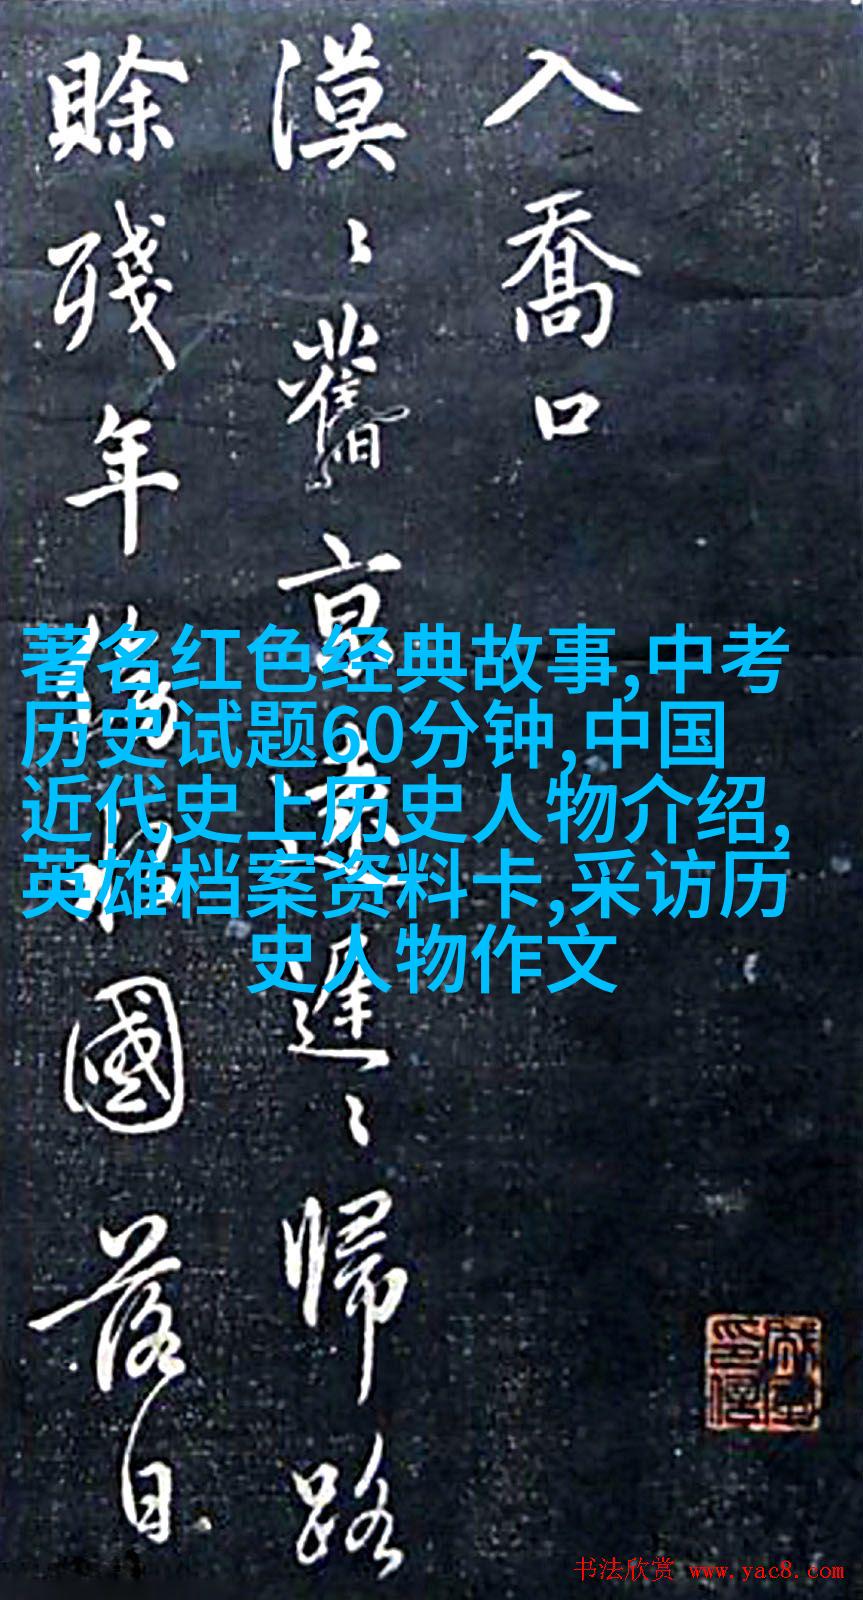 入喬口
漠々舊京遠遲々歸路
賒殘年傍水國落日
著名红色经典故事,中考
历史试题60分钟,中国
近代史上历史人物介绍,
英雄档案资料卡,采访历
史人物作文
书法欣赏 www.yac8.com